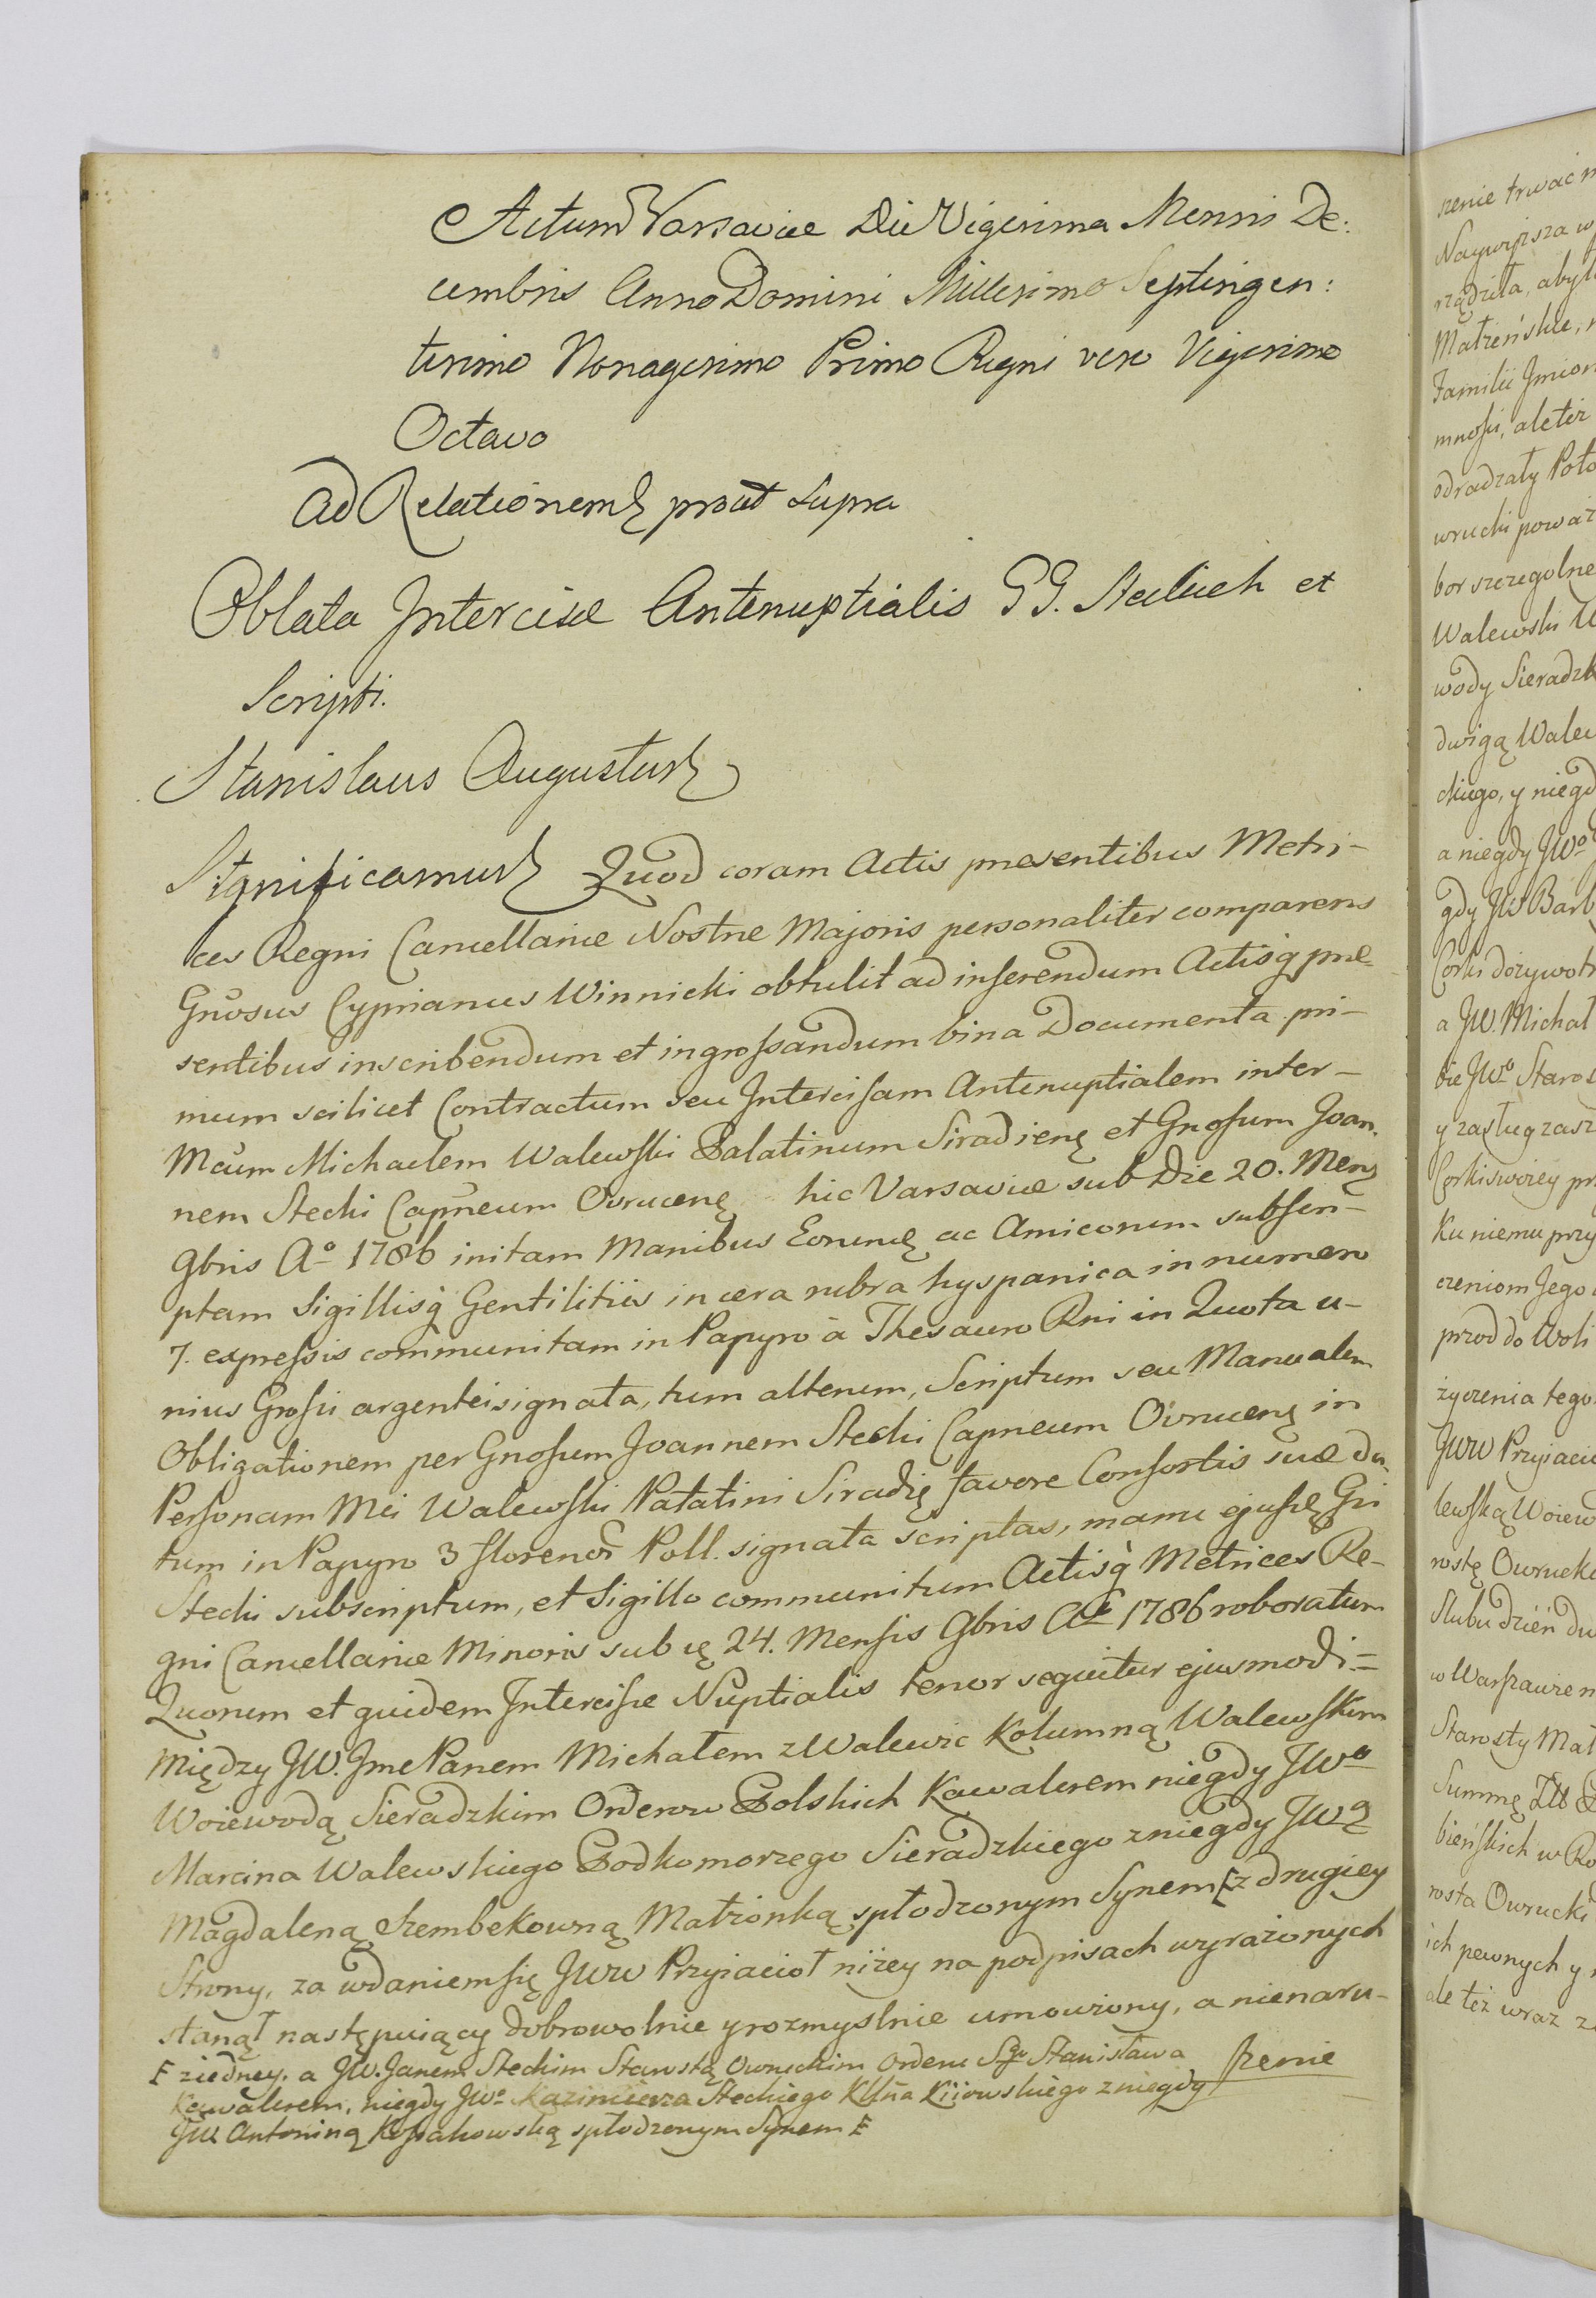 Actum Varsaviæ Die Vigesima Mensis De:
cembris Anno Domini Millesimo Septingen:
tesimo Nonagesimo Primo Regni vero Vigesimo
Octavo
Ad Relationem prout supra
Oblata Intercisæ Antenuptialis GG. Steckich et
Scripti.
Stanislaus Augustus
Significamus Quod coram Actis præsentibus Metri-
ces Regni Cancellariæ Nostræ Majoris personaliter comparens
Gnosus Cyprianus Winnicki obtulit ad inserendum Actisq præ-
sentibus inscribendum et ingrossandum bina Documenta pri-
mum scilicet Contractum seu Intercisam Antenuptialem inter-
Mcum Michaelem Walewski Palatinum Siradienę et Gnosum Joan.
nem Stecki Capneum Ovrucenę hic Varsaviæ sub Die 20. Mens
9bris Aº 1786 initam Manibus Eorumę ac Amicorum subscri-
ptam Sigillisq Gentilitiis in cera rubra hyspanica in numero
7. expressis communitam in Papyro à Thesauro Rni in Quota u-
nius Grossi argentei signata, tum alterum, Scriptum seu Manualem
Obligationem per Gnosum Joannem Stecki Capneum Ovrucenę in
Personam Mci Walewski Palatini Siradię favore Consortis suæ da
tum in Papyro 3 florenor Poll. signata scriptas, manu ejusdę Gri
Stecki subscriptum, et Sigillo communitum Actisq Metrices Re-
gni Cancellariæ Minoris sub ię 24. Mensis 9bris Aº 1786 roboratum
Quorum et quidem Intercisæ Nuptialis tenor sequitur ejusmodi =
Między JW. Jme Panem Michałem z Walewic Kolumną Walewskim
Woiewodą Sieradzkim Orderow Polskich Kawalerem niegdy JWº
Marcina Walewskiego Podkomorzego Sieradzkiego z niegdy JWą
Magdaleną Szembekowną Małżonką spłodzonym Synem F z drugiey
Strony, za wdaniem się JWW Przyiacioł niżey na podpisach wyrażonych
stanął następuiący dobrowolnie y rozmyslnie umowiony, a nienaru-
szenie
F z iedney. a JW. Janem Steckim Starostą Owruckim Orderu Sgo Stanisława
Kawalerem, niegdy JWº Kazimierza Steckiego Kllna Kiiowskiego z niegdy
JW. Antoniną Kossakowską spłodzonym Synem F
szenie trwać
Naywyższa w
rządziła, abyl
Małżeńskie,
Familii Jmion
mnosci, ale też
odradzały Poto
wrucki poważ
bor szczegolne
Walewski W
wody Sieradzk
dwigą Walew
ckiego, y niegd
a niegdy JWº
gdy JW Barb
Corki dożywotn
a JW. Michał
bie JWº Staros
y zasług zasz
Corki swoiey prz
Ku niemu przy
czeniom Jego
przod do Woli
życzenia tego
JWW Przyiacio
lewską Woiew
rostę Owrucki
Slubu dzień dw
w Warszawie n
Starosty Mał
Summę
bieńskich w Ro
rosta Owrucki
ich pewnych y
ale też wraz z